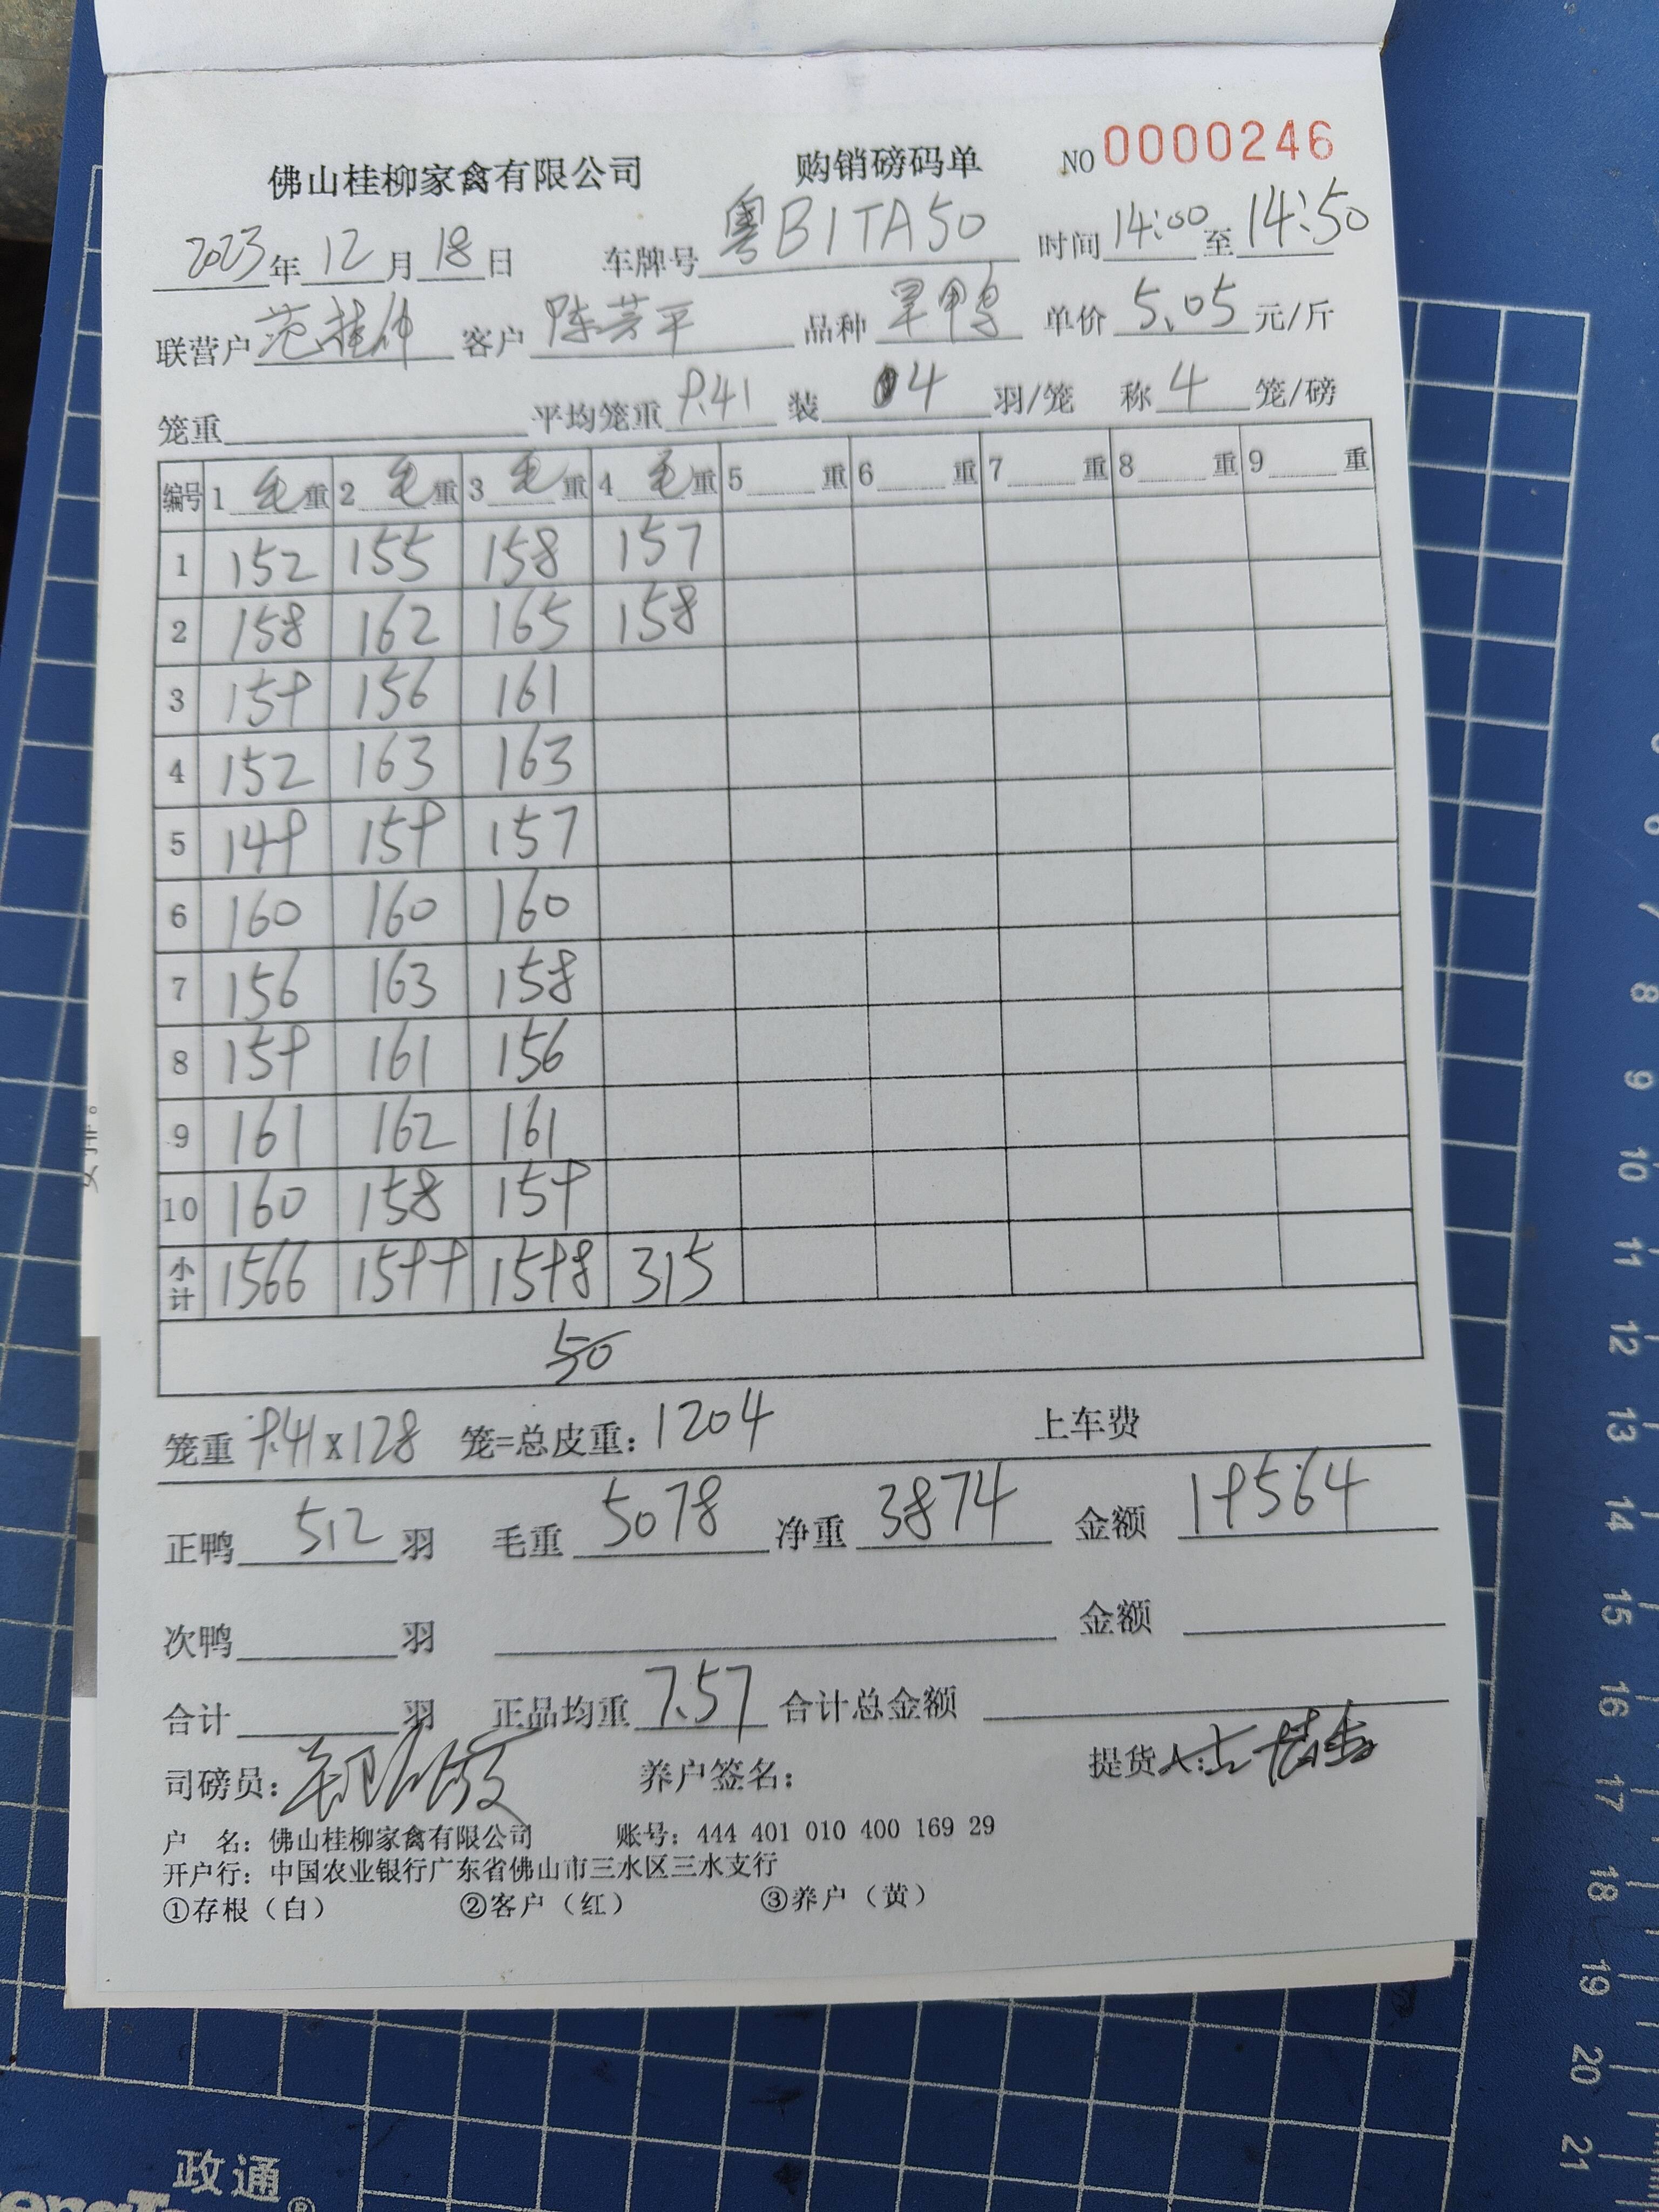 佛山桂柳家禽有限公司 购销磅码单 NO 0000246
2023年12月18日 车牌号 粤B1TA50 时间 14:00 至 14:50
联营户 范桂仲 客户 陈芳平 品种 旱鸭 单价 5.05 元/斤
笼重 平均笼重 9.41 装 4 羽/笼 称 4 笼/磅
编号 1 毛重 2 毛重 3 毛重 4 毛重 5 重 6 重 7 重 8 重 9 重
1 152 155 158 157
2 158 162 165 158
3 159 156 161
4 152 163 163
5 149 159 157
6 160 160 160
7 156 163 158
8 159 161 156
9 161 162 161
10 160 158 159
小计 1566 1599 1598 315
50
笼重 9.41 x 128 笼=总皮重: 1204 上车费
正鸭 512 羽 毛重 5078 净重 3874 金额 19564
次鸭 羽 金额
合计 羽 正品均重 7.57 合计总金额
司磅员: 养户签名: 提货人:
户 名: 佛山桂柳家禽有限公司 账号: 444 401 010 400 169 29
开户行: 中国农业银行广东省佛山市三水区三水支行
①存根（白） ②客户（红） ③养户（黄）
6
7
8
9
10
11
12
13
14
15
16
17
18
19
20
21
政通®